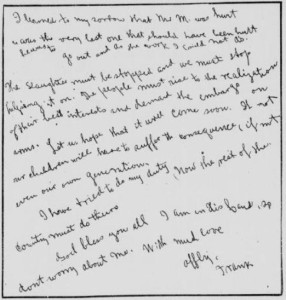 I learned to my sorrow that Mr. M. was hurt
was the very last one that should have been hurt
go out and do the work I could not do.
The slaughter must be stopped and we must stop
helping it on. The people must rise to the realization
of their best interests and demand the embargo on
arms. Let us hope that it will come soon. If not
our children will have to suffer the consequences, if not
even our own generation.
I have tried to do my duty. Now the rest of the
country must do theirs
God bless you all I am in this
dont worry about me. With much love
affly,
Frank